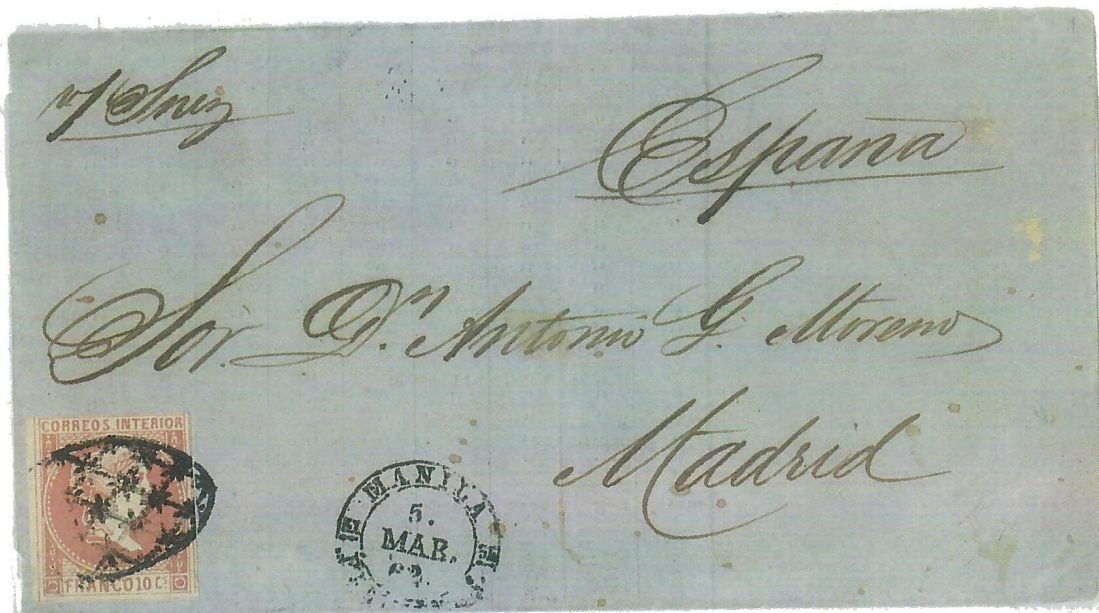 v/ Suez
España
Sor. Dn. Antonio G. Moreno
Madrid
CORREOS INTERIOR
FRANCO 10 Cs
MANILA
5.
MAR.
62.